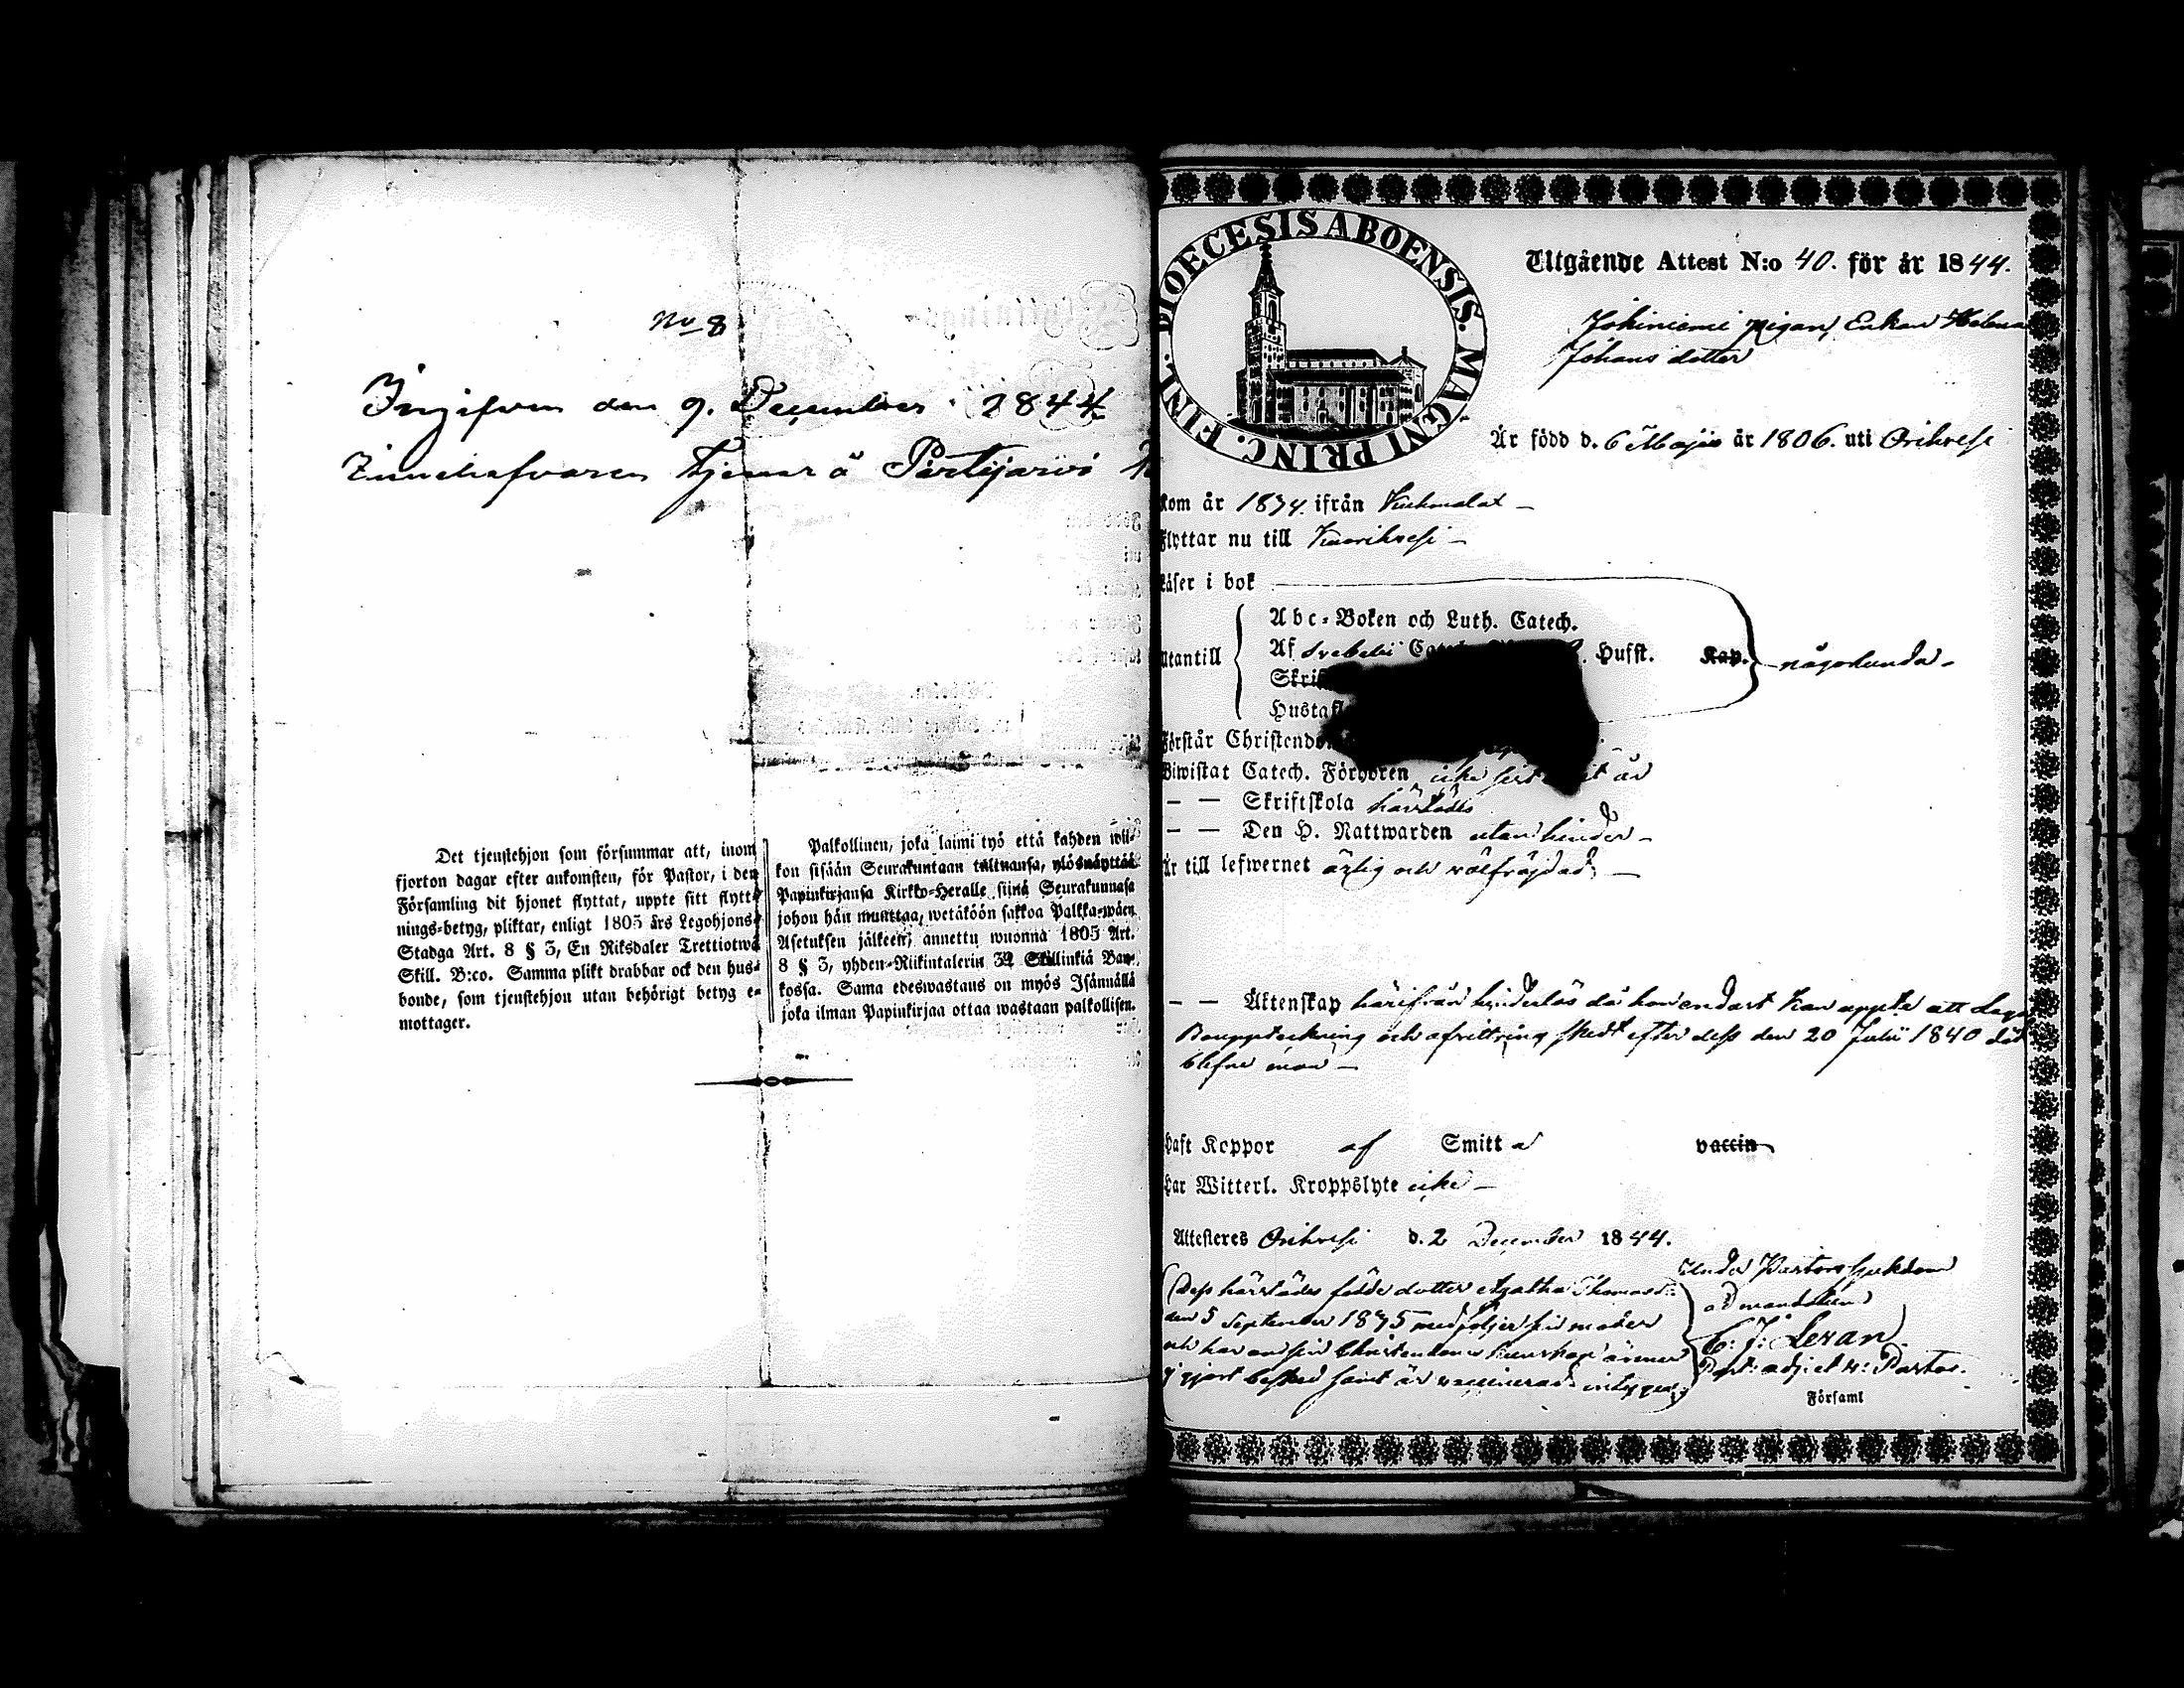 No 8
Ingifven den 9. December 1844
Innehafvaren tjenar å Pertijärvi
Det tjenstehjon som försummar att, inom
fjorton dagar efter ankomsten, för Pastor, i den
Församling dit hjonet flyttat, uppte sitt flytt-
nings-betyg, pliktar, enligt 1805 års Legohjons-
Stadga Art. 8 § 3, En Riksdaler Trettiotwå
Skill. B:co. Samma plikt drabbar ock den hus-
bonde, som tjenstehjon utan behörigt betyg e-
mottager.
Palkollinen, joka laimi työ että kahden wii-
kon sisään Seurakuntaan tultuansa, ylösnäyttää
Papinkirjansa Kirkko-Heralle siinä Seurakunnasa
johon hän muuttaa, wetäköön sakkoa Palkka-wäen
Asetuksen jälkeen, annettu wuonna 1805 Art.
8 § 3, yhden-Riikintalerin 32 Skillinkiä Ban-
kossa. Sama edeswastaus on myös Isännällä
joka ilman Papinkirjaa ottaa wastaan palkollisen.
DIOECESIS ABOENSIS. MAGNI PRINC. FINL.
Utgående Attest N:o 40. för år 1844.
Jokiniemi pigan, Enkan Helena
Johans dotter
Är född d. 6 Maji år 1806. uti Orihvesi
kom år 1834. ifrån Kuhmalax
Flyttar nu till Kuorihvesi
läser i bok
Abc-Boken och Luth. Catech.
Utantill Af Svebelii Hufst. Kap. någorlunda
Hustafl
Förstår Christendo
Biwistat Catech. Förhören icke sist år
— — Skriftskola härstädes
— — Den H. Nattwarden utan hinder
Är till lefwernet ärlig och välfräjdad
— — Äktenskap härifrån hinderlös då hon endast kan uppte att Laga
Bouppteckning och afvittring skedt efter dess den 20 Julii 1840 död
blefne man
haft Koppor af Smitta vaccin
har Witterl. Kroppslyte icke
Attesteres Orihvesi d. 2 December 1844.
(Dess härstädes födde dotter Agatha Thomasd:r
den 5 September 1835 medföljer sin moder
och har om sin Christendoms kunskap ännu
ej gjort besked samt är vaccinerad
Under Pastors sjukdom
ad mandatum
C: J: Leran
Past: adj: et n: Pastor.
Församl